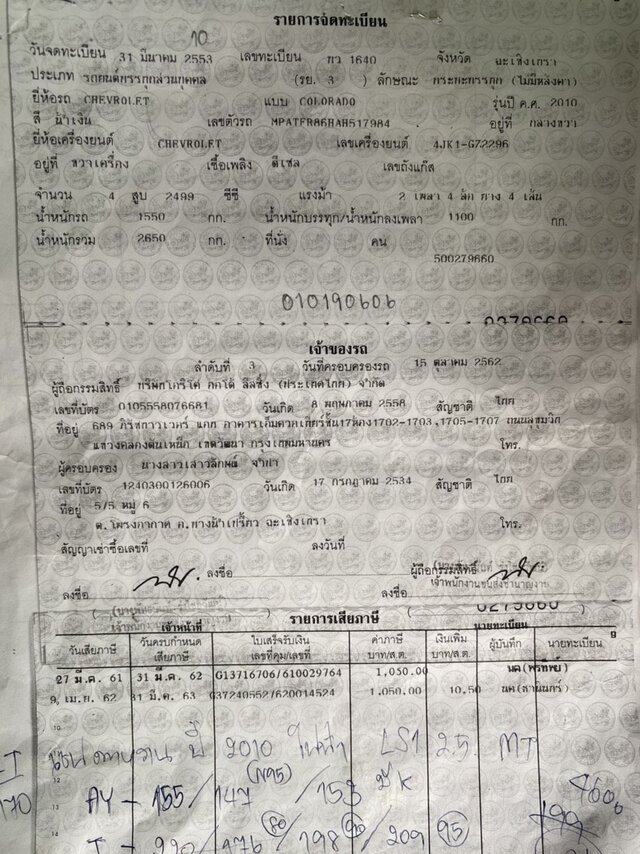 รายการจดทะเบียน
10
วันจดทะเบียน 31 มีนาคม 2553 เลขทะเบียน 1640 จังหวัด ฉะเชิงเทรา
ประเภท รถยนต์บรรทุกส่วนบุคคล (รย. 3 ) ลักษณะ กระบะบรรทุก (ไม่มีหลังคา)
ยี่ห้อรถ CHEVROLET แบบ COLORADO รุ่นปี ค.ศ. 2010
สี น้ำเงิน เลขตัวรถ MPATFR86HAH517984 อยู่ที่ กลางขวา
ยี่ห้อเครื่องยนต์ CHEVROLET เลขเครื่องยนต์ 4JK1-GZ2296
อยู่ที่ ขวาเครื่อง เชื้อเพลิง ดีเซล เลขถังแก๊ส
จำนวน 4 สูบ 2499 ซีซี แรงม้า 2 เพลา 4 ล้อ ยาง 4 เส้น
น้ำหนักรถ 1550 กก. น้ำหนักบรรทุก/น้ำหนักลงเพลา 1100 กก.
น้ำหนักรวม 2650 กก. ที่นั่ง คน
500279660
010190606
เจ้าของรถ
ลำดับที่ 3 วันที่ครอบครองรถ 15 ตุลาคม 2562
ผู้ถือกรรมสิทธิ์ บริษัท ลีสซิ่ง (ประเทศไทย) จำกัด
เลขที่บัตร 0105558076681 วันเกิด 8 พฤษภาคม 2558 สัญชาติ ไทย
ที่อยู่ 689 ภิรัชทาวเวอร์ แอท อาคารเอ็มควอเทียร์ชั้น17ห้อง1702-1703,1705-1707 ถนนสุขุมวิท
แขวงคลองตันเหนือ เขตวัฒนา กรุงเทพมหานคร โทร.
ผู้ครอบครอง นางสาวเสาวลักษณ์ จำปา
เลขที่บัตร 1240300126006 วันเกิด 17 กรกฎาคม 2534 สัญชาติ ไทย
ที่อยู่ 5/5 หมู่ 6
ต.โพรงอากาศ อ.บางน้ำเปรี้ยว ฉะเชิงเทรา โทร.
สัญญาเช่าซื้อเลขที่ ลงวันที่
ผู้ถือกรรมสิทธิ์
ลงชื่อ ลงชื่อ
เจ้าหน้าที่ รายการเสียภาษี นายทะเบียน 9
วันเสียภาษี วันครบกำหนดเสียภาษี ใบเสร็จรับเงิน เลขที่คุม/เลขที่ ค่าภาษี บาท/ส.ต. เงินเพิ่ม บาท/ส.ต. ผู้บันทึก นายทะเบียน
27 มี.ค. 61 31 มี.ค. 62 G13716706/610029764 1,050.00
9 เม.ย. 62 31 มี.ค. 63 G37240552/620014524 1,050.00 10.50
ปี 2010 LS1 2.5 MT
AY - 155/147 (N95) /153
220/ 176 (80) /198 (90) /209 (95)